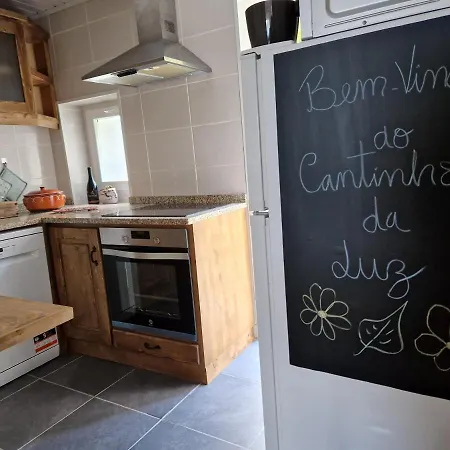 Bem-Vin
do
Cantinho
da
Luz